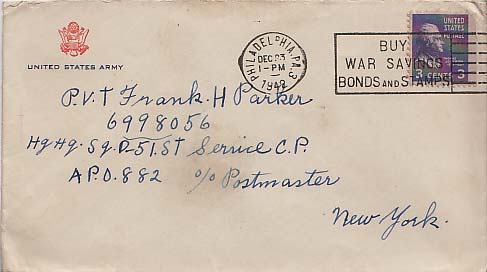 UNITED STATES ARMY
PHILADELPHIA, PA. 3
DEC 23
1-PM
1942
BUY
WAR SAVINGS
BONDS AND STAMPS
UNITED STATES
POSTAGE
3 CENTS 3
P.V.T Frank. H Parker
6998056
Hq Hq. Sq. D-51.ST Service C.P.
A.P.O. 882 c/o Postmaster
New York.